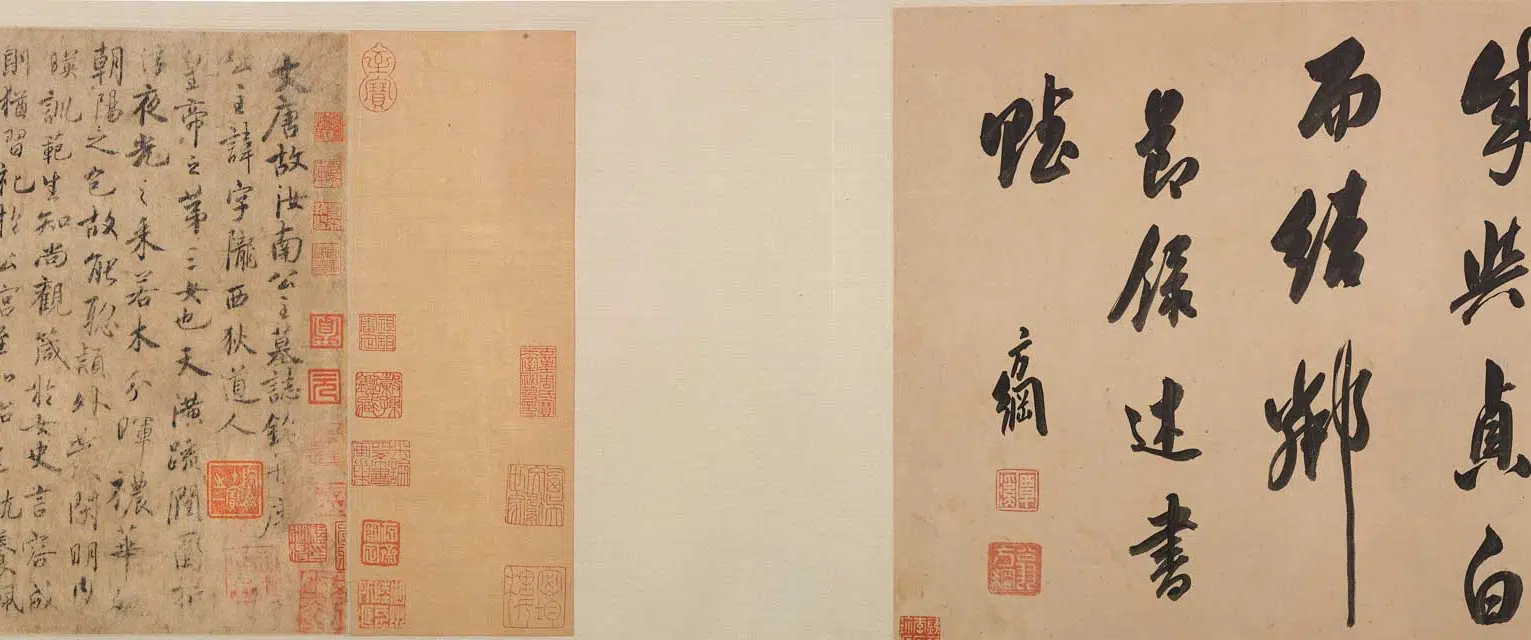 與貞白
而結鄰
節錄述書
賦
方綱
大唐故汝南公主墓誌銘并序
公主諱字隴西狄道人
皇帝之第三女也天潢疏潤圓折
浮夜光之采若木分暉穠華
朝陽之色故能聰穎外發閑明內
暎訓範生知尚觀箴於女史言容成
則猶習禮於公宮至如怡色就養佩